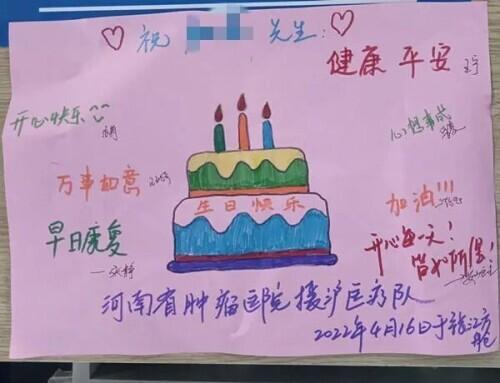 祝 先生:
健康 平安
开心快乐
心想事成
万事如意
生日快乐
加油!!!
早日康复
开心每一天!
皆如所愿
河南省肿瘤医院援沪医疗队
2022年4月16日于张江方舱